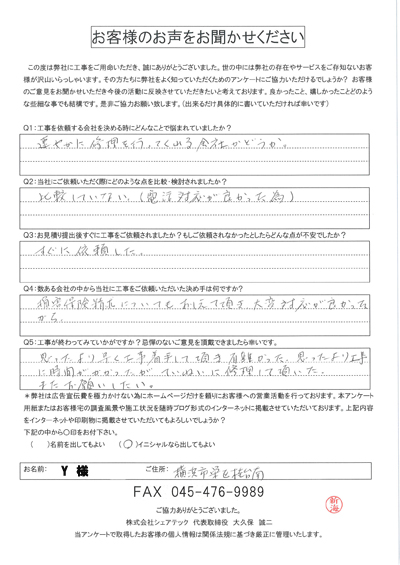 お客様のお声をお聞かせください
この度は弊社に工事をご用命いただき、誠にありがとうございました。世の中には弊社の存在やサービスをご存知ないお客様
が沢山いらっしゃいます。その方たちに弊社をよく知っていただくためのアンケートにご協力いただけるでしょうか? お客様
のご意見をお聞かせいただき今後の活動に反映させていただきたいと考えております。良かったこと、嬉しかったことどのよう
な些細な事でも結構です。是非ご協力お願い致します。(出来るだけ具体的に書いていただければ幸いです)
Q1:工事を依頼する会社を決める時にどんなことで悩まれていましたか?
速やかに修理を行ってくれる会社かどうか。
Q2:当社にご依頼いただく際にどのような点を比較・検討されましたか?
比較していない。(電話対応が良かった為)
Q3:お見積り提出後すぐに工事をご依頼されましたか?もしご依頼されなかったとしたらどんな点が不安でしたか?
すぐに依頼した。
Q4:数ある会社の中から当社に工事をご依頼いただいた決め手は何ですか?
損害保険請求についてもおしえて頂き、大変対応が良かった
から。
Q5:工事が終わってみていかがですか?忌憚のないご意見を頂戴できましたら幸いです。
思ったより早く工事着手して頂き有難かった。思ったより工事
に時間がかかったがていねいに修理して頂いた。
またお願いしたい。
弊社は広告宣伝費を極力かけない為にホームページだけを頼りにお客様への営業活動を行っております。本アンケート
用紙またはお客様宅の調査風景や施工状況を随時ブログ形式のインターネットに掲載させていただいております。上記内容
をインターネットや印刷物に掲載させていただいてもよろしいでしょうか?
下記の中から〇印をお付下さい。
( )名前を出してもよい (〇)イニシャルなら出してもよい
お名前: Y 様 ご住所: 横浜市栄区桂台南
FAX 045-476-9989
ご協力ありがとうございました。
新海
株式会社シェアテック 代表取締役 大久保 誠二
当アンケートで取得したお客様の個人情報は関係法規に基づき厳正に管理いたします。